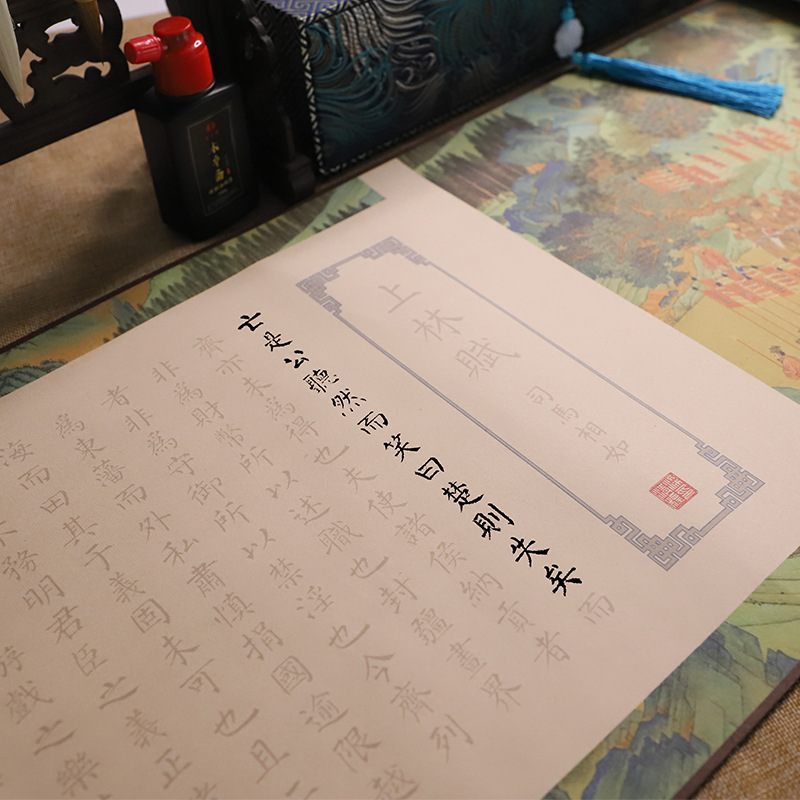 上林賦
司馬相如
亡是公聽然而笑曰楚則失矣而
齊亦未爲得也夫使諸侯納貢者
非爲財幣所以述職也封疆畫界
者非爲守御所以禁淫也今齊列
爲東藩而外私肅慎捐國逾限越
海而田其于義固未可也且
務明君臣之義正
游戲之樂